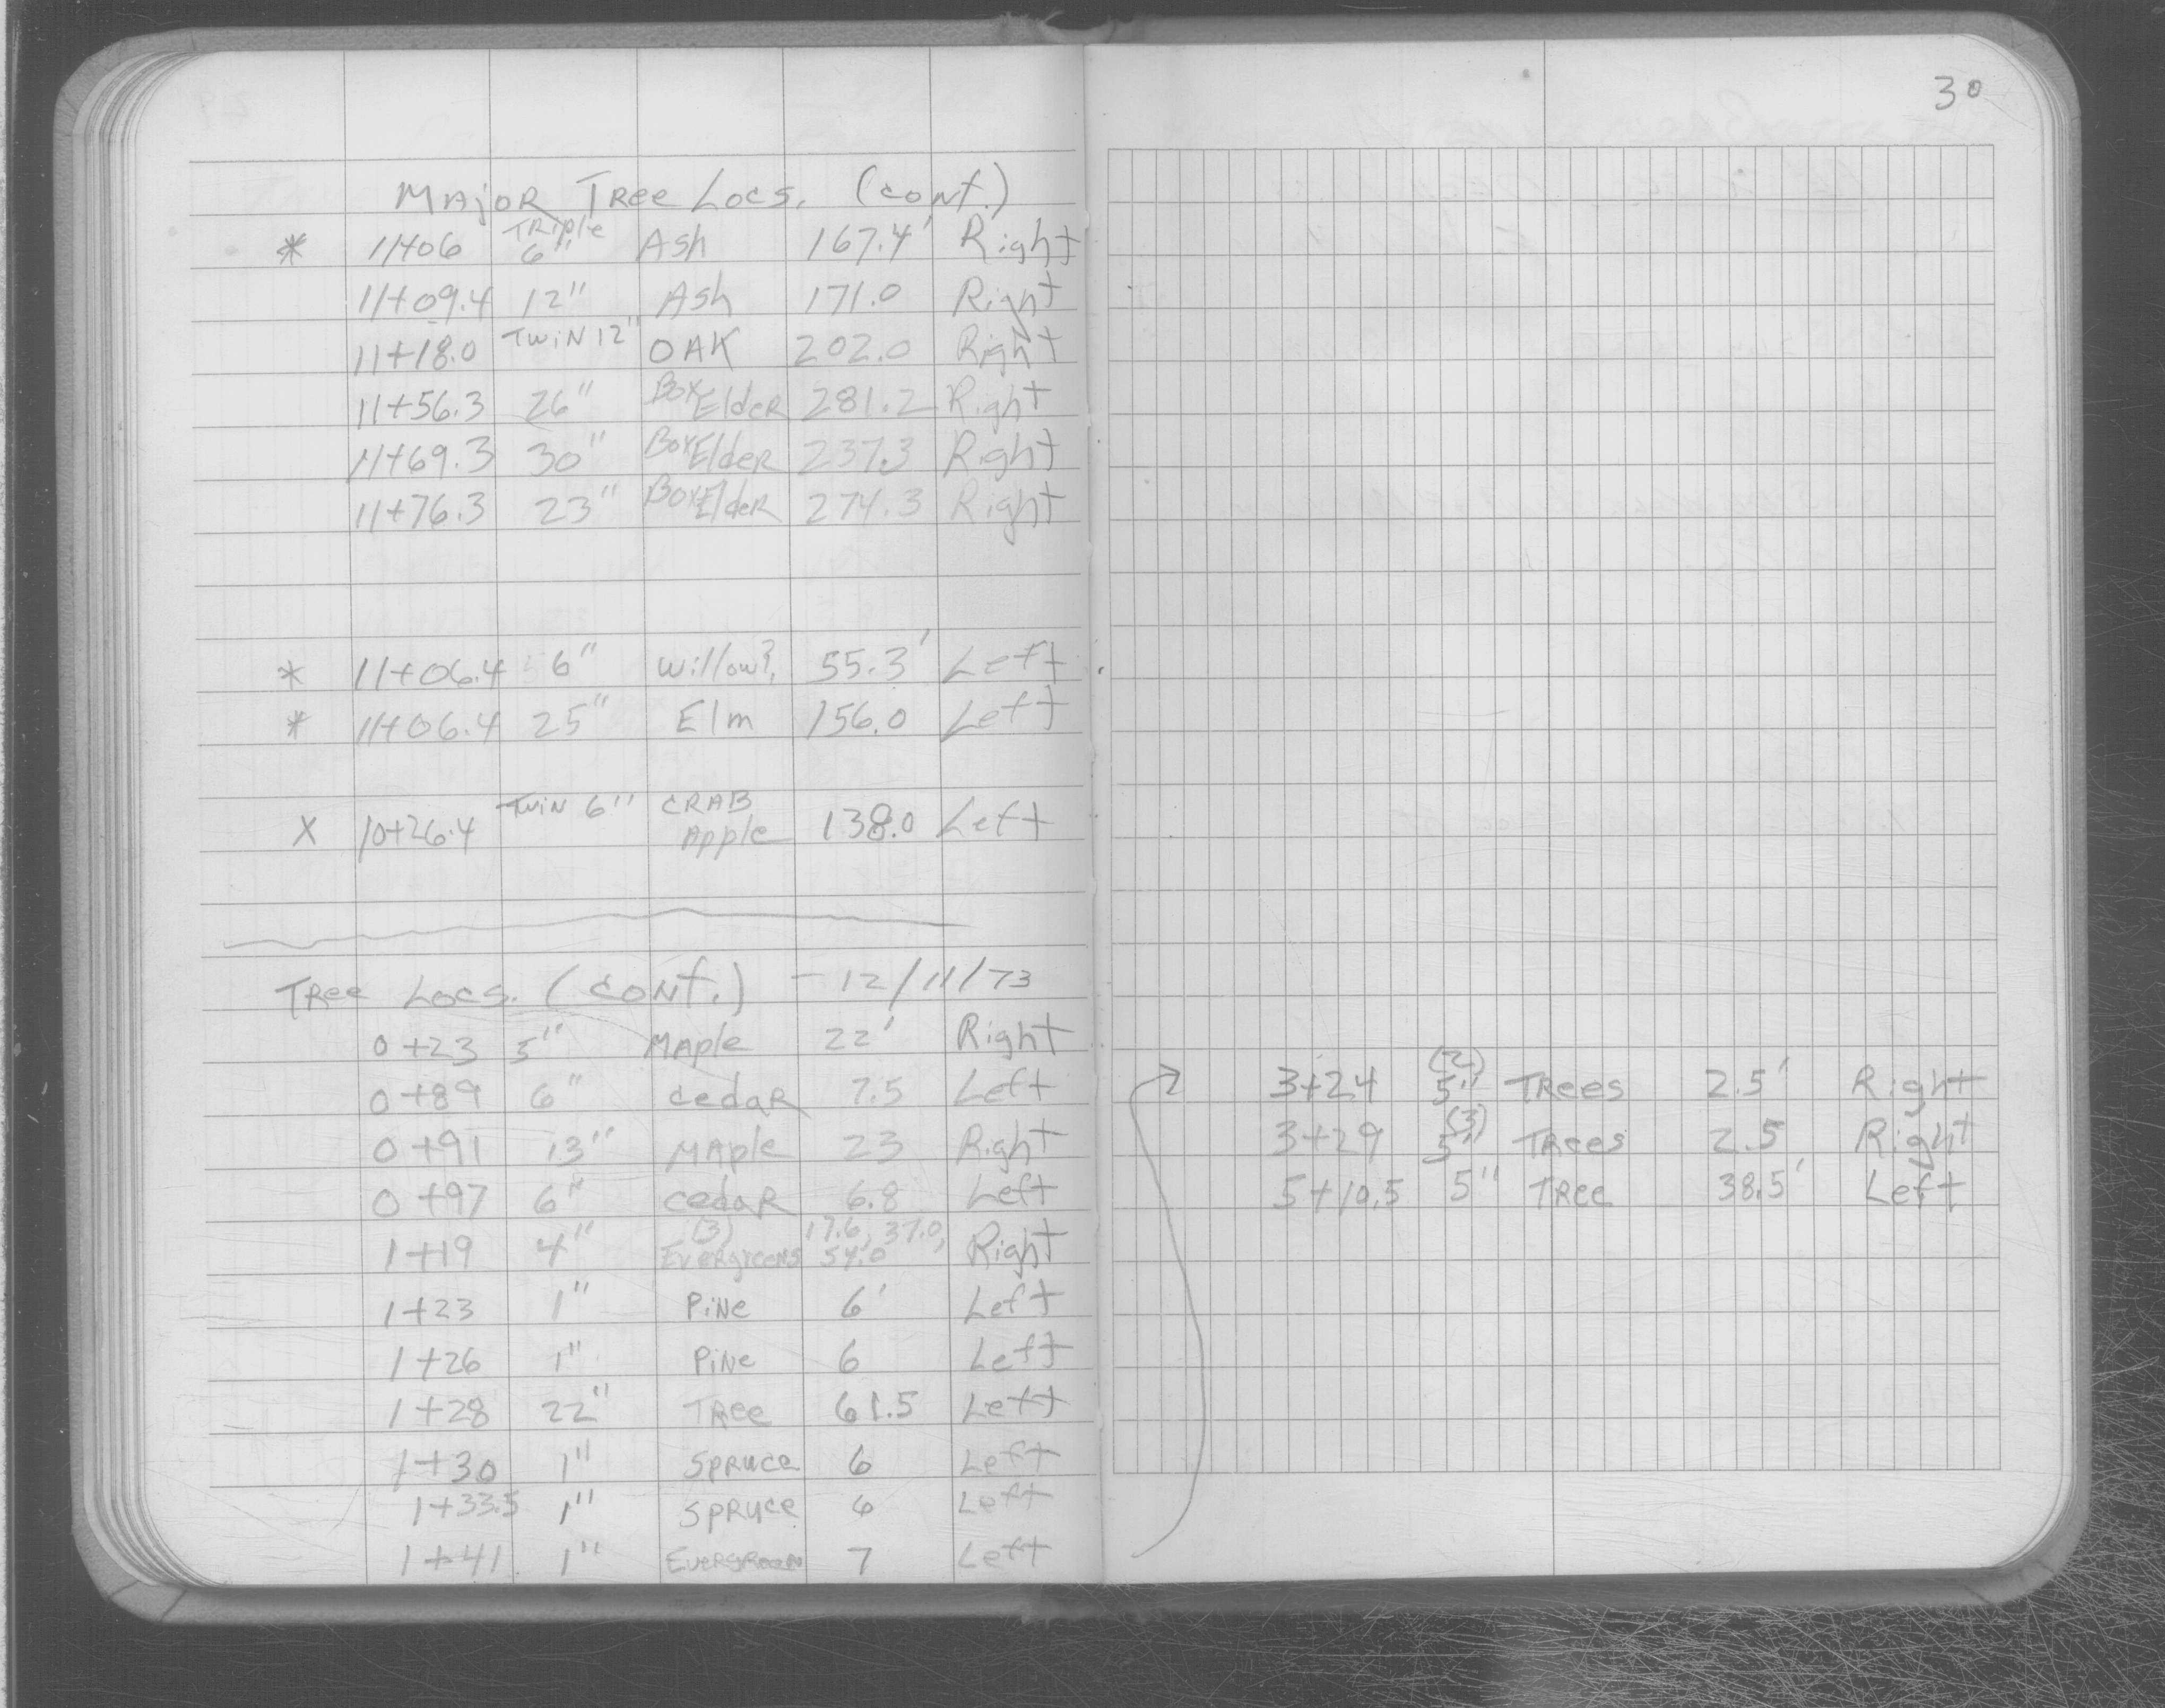 30
Major Tree Locs. (cont.)
* 11+06 Triple 6" Ash 167.4' Right
11+09.4 12" Ash 171.0 Right
11+18.0 Twin 12" Oak 202.0 Right
11+56.3 26" Box Elder 281.2 Right
11+69.3 30" Box Elder 237.3 Right
11+76.3 23" Box Elder 274.3 Right
* 11+06.4 6" Willow? 55.3' Left
* 11+06.4 25" Elm 156.0 Left
X 10+26.4 Twin 6" Crab Apple 138.0 Left
Tree Locs. (cont.) - 12/11/73
0+23 5" Maple 22' Right
0+89 6" Cedar 7.5 Left
0+91 13" Maple 23 Right
0+97 6" Cedar 6.8 Left
1+19 4" (3) Evergreens 17.6, 37.0, 54.0 Right
1+23 1" Pine 6' Left
1+26 1" Pine 6 Left
1+28 22" Tree 61.5 Left
1+30 1" Spruce 6 Left
1+33.5 1" Spruce 6 Left
1+41 1" Evergreen 7 Left
3+24 (2) 5" Trees 2.5' Right
3+29 (3) 5" Trees 2.5 Right
5+10.5 5" Tree 38.5' Left